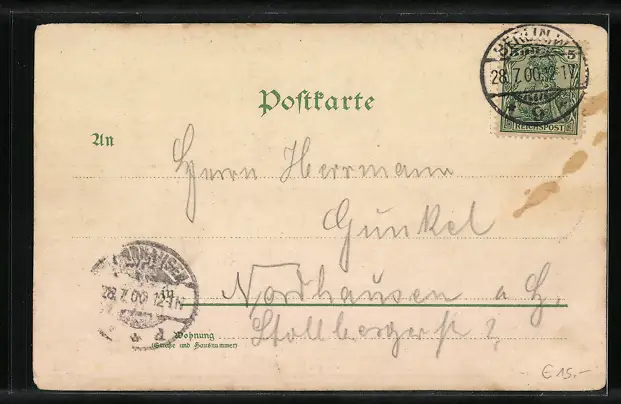 BERLIN.W.
28.7.00.12-1N.
9
5
REICHSPOST
Postkarte
An
Herrn Herrmann
Gunkel
Nordhausen a. H.
Stollbergerstr 2
NORDHAUSEN
28.7.00
d
Wohnung
(Straße und Hausnummer)
€ 15,-